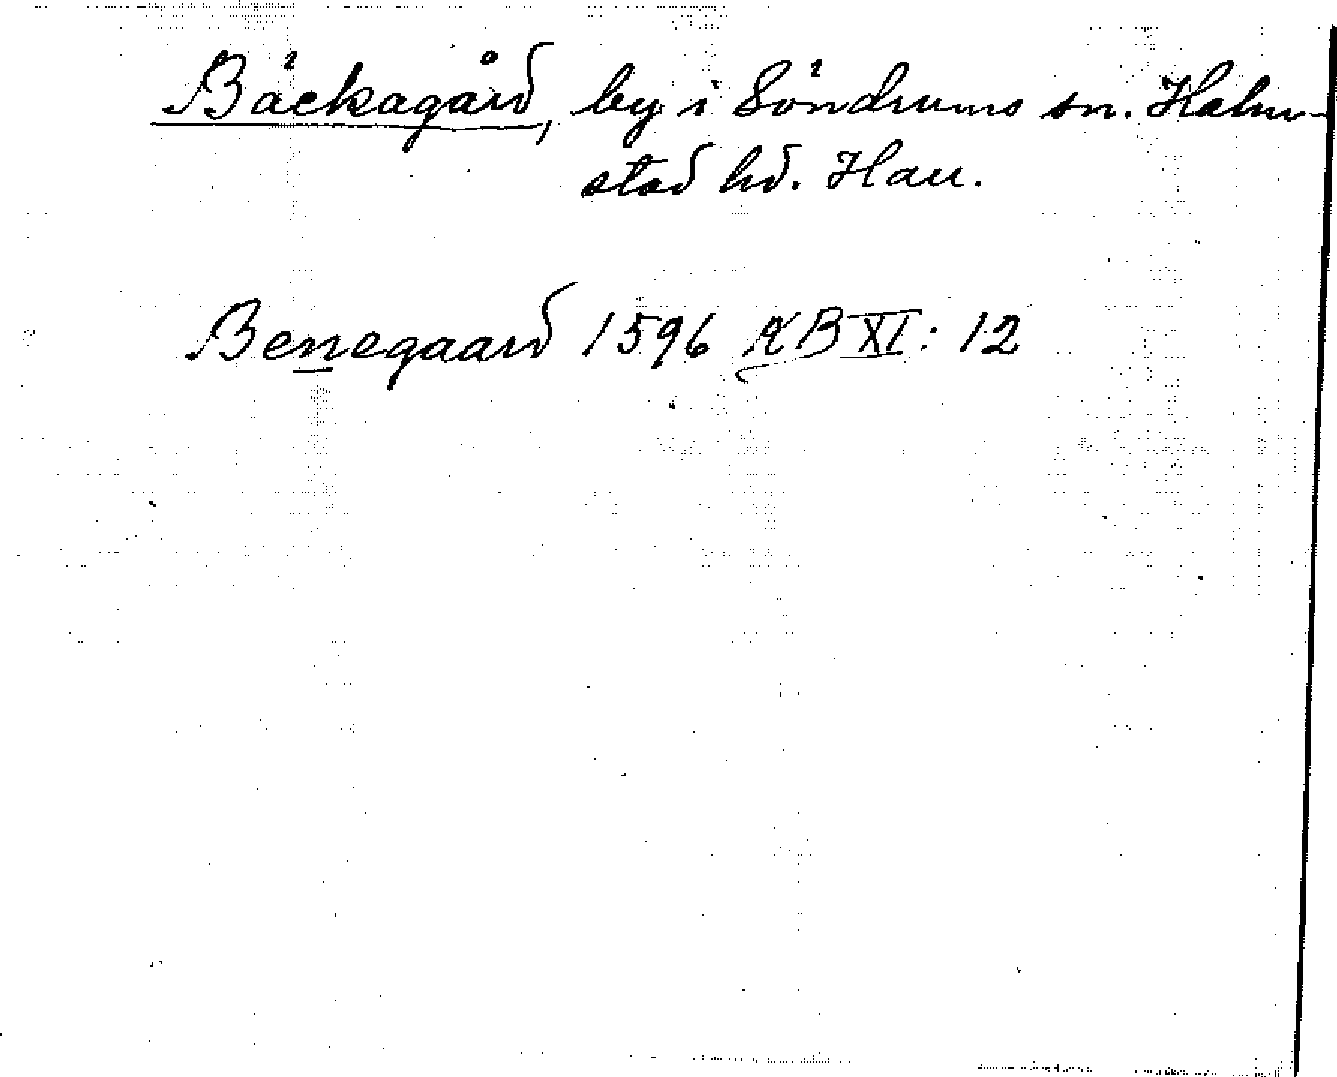 Bäckagård, by i Söndrums sn. Halm-
stad hd. Hall.
Benegaard 1596 KB XI: 12